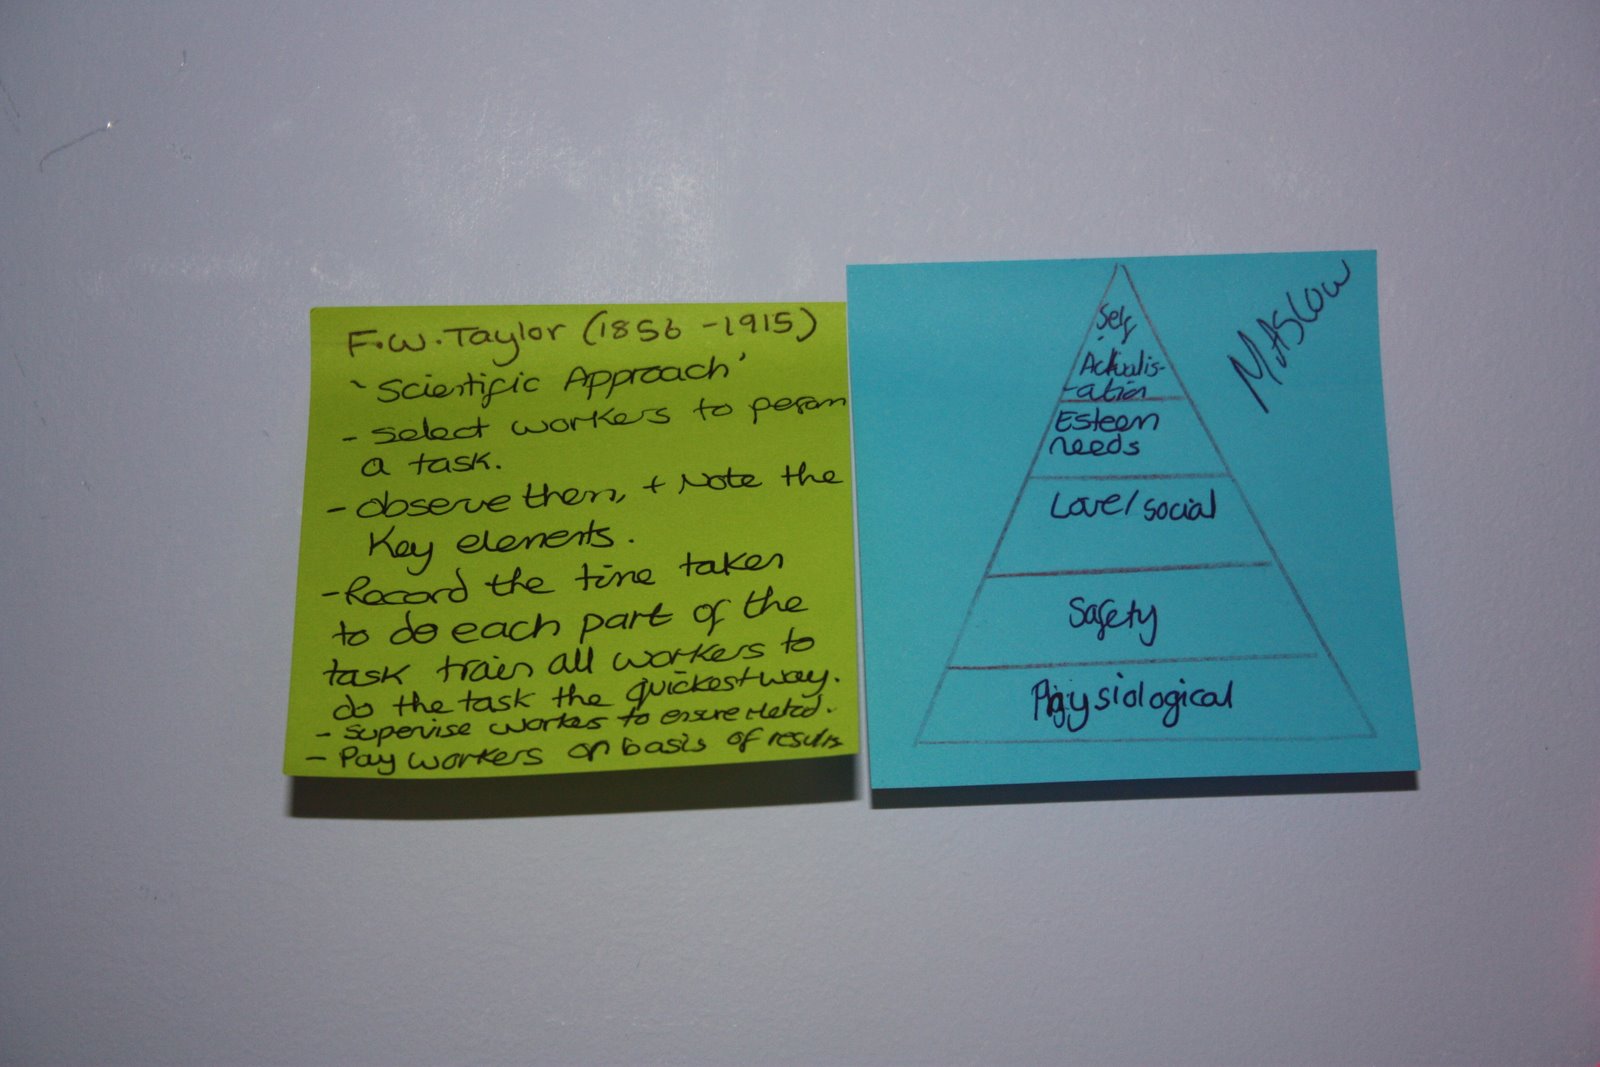 F.W. Taylor (1856 - 1915)
'Scientific Approach'
- Select workers to perform
a task.
- observe them, + Note the
Key elements.
- Record the time taken
to do each part of the
task train all workers to
do the task the quickest way.
- Supervise workers to ensure Metod.
- Pay workers on basis of results
MASLOW
Self
Actualis-
-ation
Esteem
needs
Love/social
Safety
Physiological